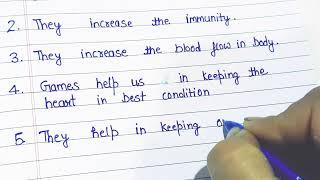 2. They increase the immunity.
3. They increase the blood flow in body.
4. Games help us in keeping the
heart in best condition
5. They help in keeping